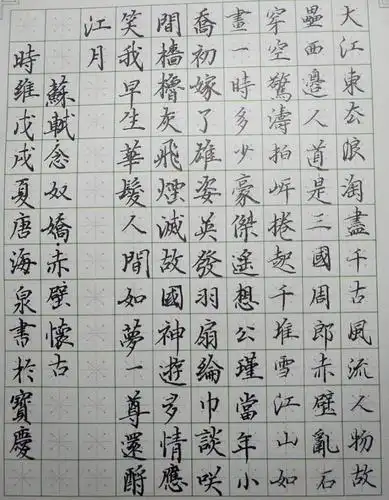 大江東去浪淘盡千古風流人物故
壘西邊人道是三國周郎赤壁亂石
穿空驚濤拍岸捲起千堆雪江山如
畫一時多少豪傑遙想公瑾當年小
喬初嫁了雄姿英發羽扇綸巾談咲
間檣櫓灰飛煙滅故國神遊多情應
笑我早生華髮人間如夢一尊還酹
江月
蘇軾念奴嬌赤壁懷古
時維戊戌夏唐海泉書於寶慶